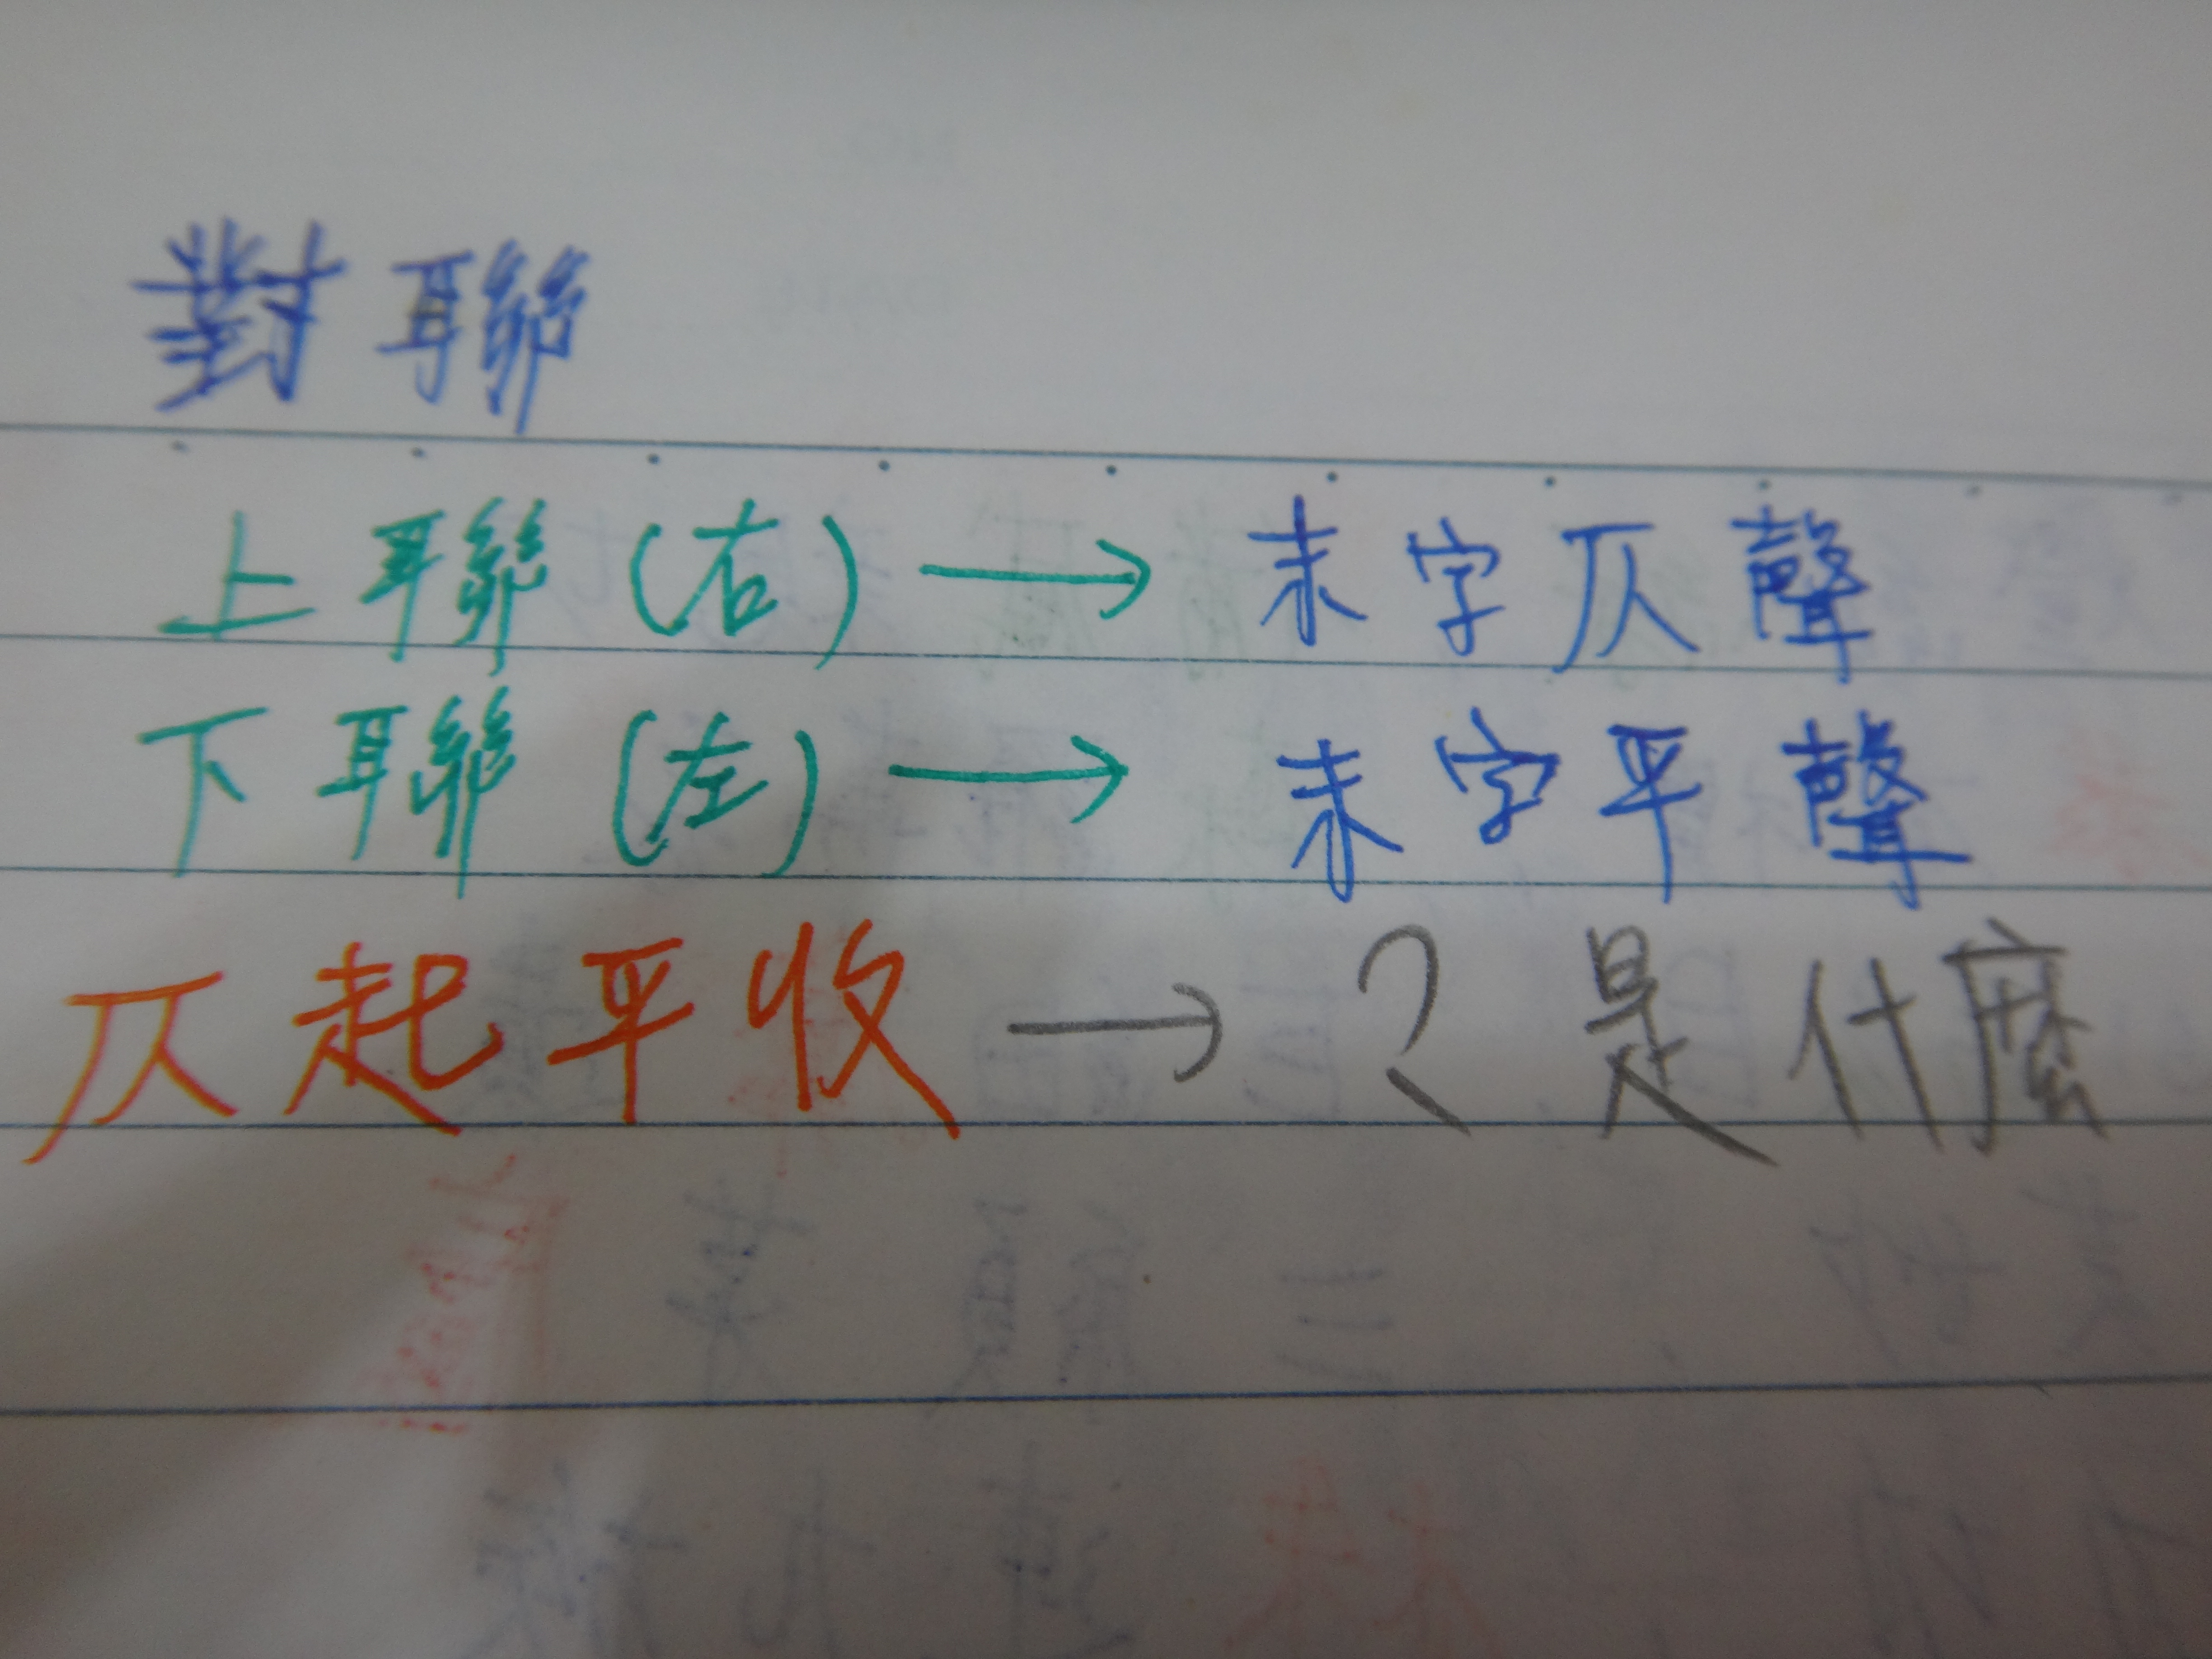 對聯
上聯(右)→末字仄聲
下聯(左)→末字平聲
仄起平收→?是什麼